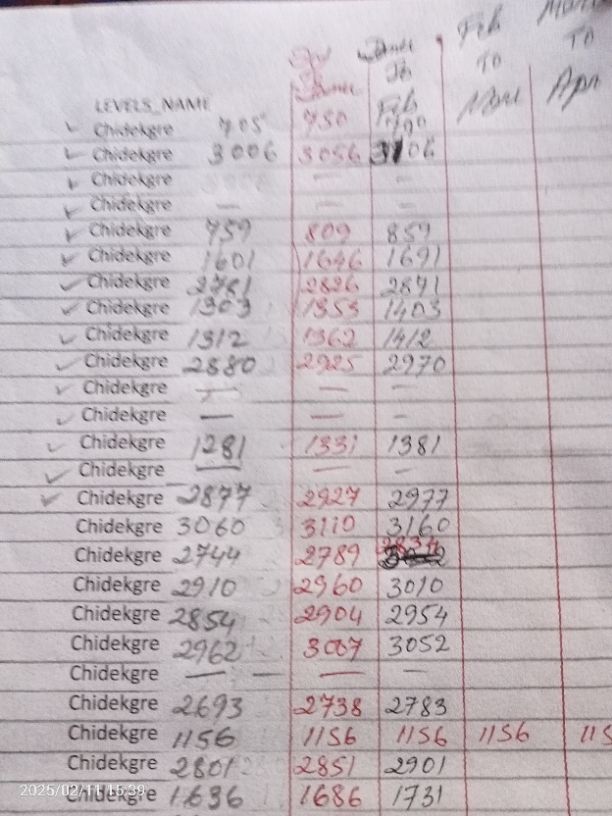 Feb
To
To
To
Mar
Apr
Feb
LEVELS_NAME
Chidekgre 705 750
Chidekgre 3006 3056 3106
Chidekgre — —
Chidekgre — — —
Chidekgre 759 809 859
Chidekgre 1601 1646 1691
Chidekgre 2781 2826 2871
Chidekgre 1303 1353 1403
Chidekgre 1312 1362 1412
Chidekgre 2880 2925 2970
Chidekgre — — —
Chidekgre — — —
Chidekgre 1281 1331 1381
Chidekgre — — —
Chidekgre 2877 2927 2977
Chidekgre 3060 3110 3160
Chidekgre 2744 2789 2834
Chidekgre 2910 2960 3010
Chidekgre 2854 2904 2954
Chidekgre 2962 3007 3052
Chidekgre — — — —
Chidekgre 2693 2738 2783
Chidekgre 1156 1156 1156 1156 115
Chidekgre 2801 2851 2901
Chidekgre 1636 1686 1731
2025/02/11 15:39